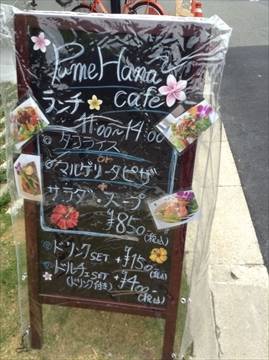 Pume Hana
ランチ cafe
11:00〜14:00
タコライス
or
マルゲリータピザ
+
サラダ・スープ
¥850(税込)
ドリンクSET +¥150(税込)
ドルチェSET +¥400(税込)
(ドリンク付き)